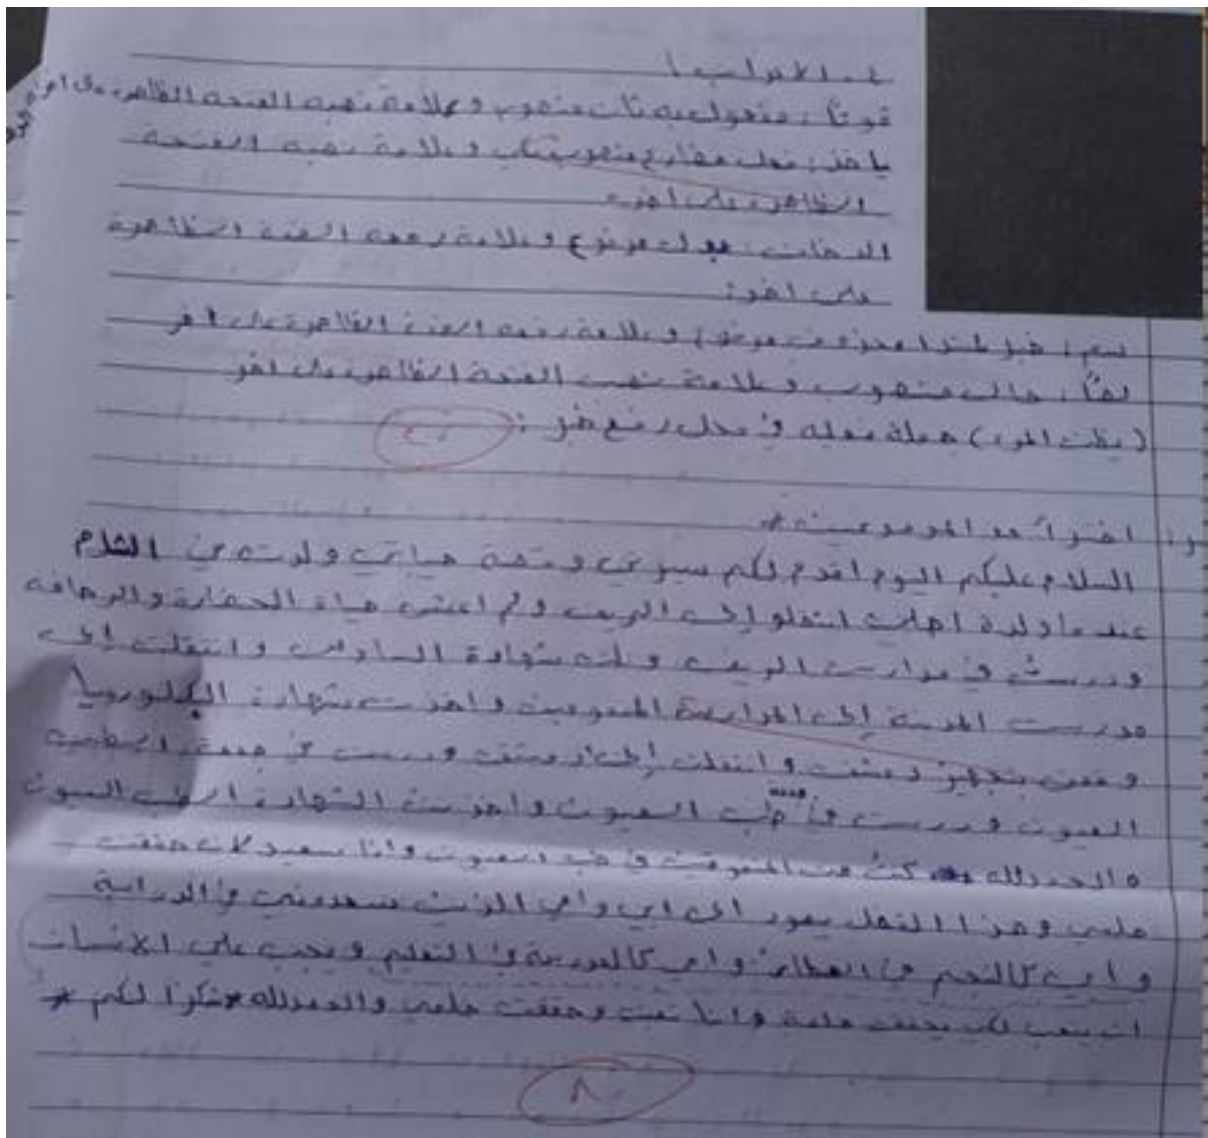 ٤ - الاعراب :
قوتاً : مفعول به ثان منصوب وعلامة نصبه الفتحة الظاهرة على اخره
ياخذ : فعل مضارع منصوب وعلامة نصبه الفتحة
الظاهرة على اخره
الدخان : مرفوع وعلامة رفعه الضمة الظاهرة
على اخر :
نسم : خبر لمبتدا محذوف مرفوع وعلامة رفعه الضمة الظاهرة على اخر
لصاً : حال منصوب وعلامة نصب الفتحة الظاهرة على اخر
(يظن المرء) جملة فعليه في محل رفع خبر :
٤٠
اختر احد الموضوعين *
السلام عليكم اليوم اقدم لكم سيرتي وقصة حياتي ولدت في الشام
عندما ولدة اهلي انتقلو إلى الريف ولم اعش حياة الحضارة والرفاهه
ودرست في مدارس الريف ونلت شهادة السادس وانتقلت إلى
مدرست المدينة إلى المدارسة المتفوقين واخذت شهادة البكلوريا
وقمت بتجهيز دمشق وانتقلت إلى دمشق ودرست في جمعة الطب
العيون ودرست في طب العيون واخذت الشهادة الطب العيون
والحمدلله كنت من المتفوقين في طب العيون وانا سعيد لان حققت
حلمي وهذا الفضل يعود الى ابي وامي الذين سعدوني في الدراسة
و ابي كالنجم في العطاء و امي كالمدرسة في التعليم ويجب على الانسان
ان يتعب لكي يحقق حلمة وانا تعبت وحققت حلمي والحمدلله *شكرا لكم *
٨٠